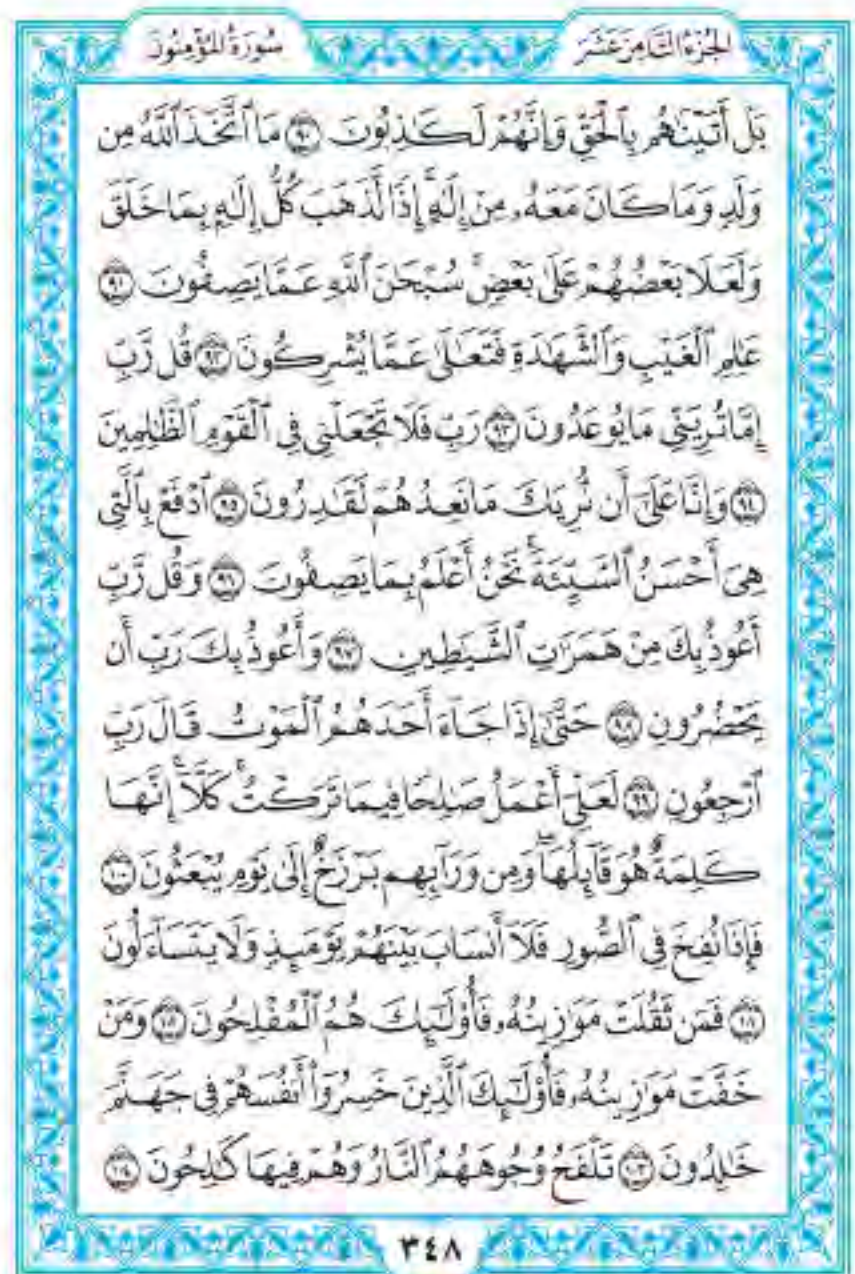 الجزء الثامن عشر
سورة المؤمنون
بَلْ أَتَيْنَٰهُم بِٱلْحَقِّ وَإِنَّهُمْ لَكَٰذِبُونَ ٩٠ مَا ٱتَّخَذَ ٱللَّهُ مِن
وَلَدٍ وَمَا كَانَ مَعَهُۥ مِنْ إِلَٰهٍ إِذًا لَّذَهَبَ كُلُّ إِلَٰهٍۭ بِمَا خَلَقَ
وَلَعَلَا بَعْضُهُمْ عَلَىٰ بَعْضٍ سُبْحَٰنَ ٱللَّهِ عَمَّا يَصِفُونَ ٩١
عَٰلِمِ ٱلْغَيْبِ وَٱلشَّهَٰدَةِ فَتَعَٰلَىٰ عَمَّا يُشْرِكُونَ ٩٢ قُل رَّبِّ
إِمَّا تُرِيَنِّي مَا يُوعَدُونَ ٩٣ رَبِّ فَلَا تَجْعَلْنِي فِي ٱلْقَوْمِ ٱلظَّٰلِمِينَ
٩٤ وَإِنَّا عَلَىٰٓ أَن نُّرِيَكَ مَا نَعِدُهُمْ لَقَٰدِرُونَ ٩٥ ٱدْفَعْ بِٱلَّتِي
هِيَ أَحْسَنُ ٱلسَّيِّئَةَ نَحْنُ أَعْلَمُ بِمَا يَصِفُونَ ٩٦ وَقُل رَّبِّ
أَعُوذُ بِكَ مِنْ هَمَزَٰتِ ٱلشَّيَٰطِينِ ٩٧ وَأَعُوذُ بِكَ رَبِّ أَن
يَحْضُرُونِ ٩٨ حَتَّىٰٓ إِذَا جَآءَ أَحَدَهُمُ ٱلْمَوْتُ قَالَ رَبِّ
ٱرْجِعُونِ ٩٩ لَعَلِّيٓ أَعْمَلُ صَٰلِحًا فِيمَا تَرَكْتُ كَلَّآ إِنَّهَا
كَلِمَةٌ هُوَ قَآئِلُهَا وَمِن وَرَآئِهِم بَرْزَخٌ إِلَىٰ يَوْمِ يُبْعَثُونَ ١٠٠
فَإِذَا نُفِخَ فِي ٱلصُّورِ فَلَآ أَنسَابَ بَيْنَهُمْ يَوْمَئِذٍ وَلَا يَتَسَآءَلُونَ
١٠١ فَمَن ثَقُلَتْ مَوَٰزِينُهُۥ فَأُو۟لَٰٓئِكَ هُمُ ٱلْمُفْلِحُونَ ١٠٢ وَمَنْ
خَفَّتْ مَوَٰزِينُهُۥ فَأُو۟لَٰٓئِكَ ٱلَّذِينَ خَسِرُوٓا۟ أَنفُسَهُمْ فِي جَهَنَّمَ
خَٰلِدُونَ ١٠٣ تَلْفَحُ وُجُوهَهُمُ ٱلنَّارُ وَهُمْ فِيهَا كَٰلِحُونَ ١٠٤
٣٤٨